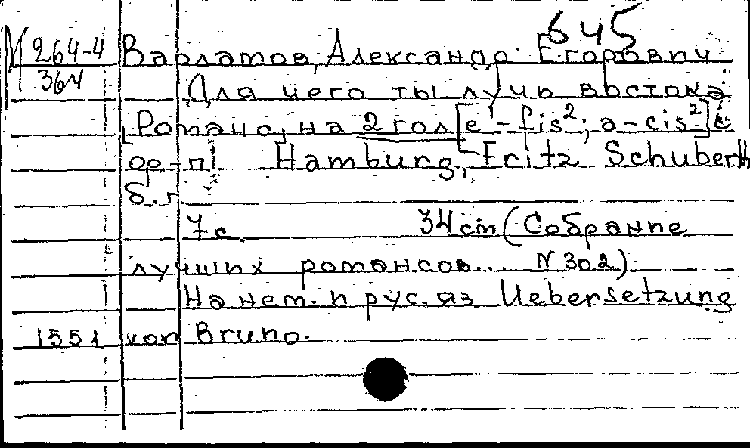 645
М 264-4 Варламов, Александр Егорович
364 Для чего ты лучь востока
[Романс, на 2 гол[e¹-fis²; a-cis²] с
ор-п] Hamburg, Fritz Schuberth
б.г
7 с. 34 cm (Собрание
лучших романсов... N 302)
На нем. и рус. яз Uebersetzung
1551 von Bruno.